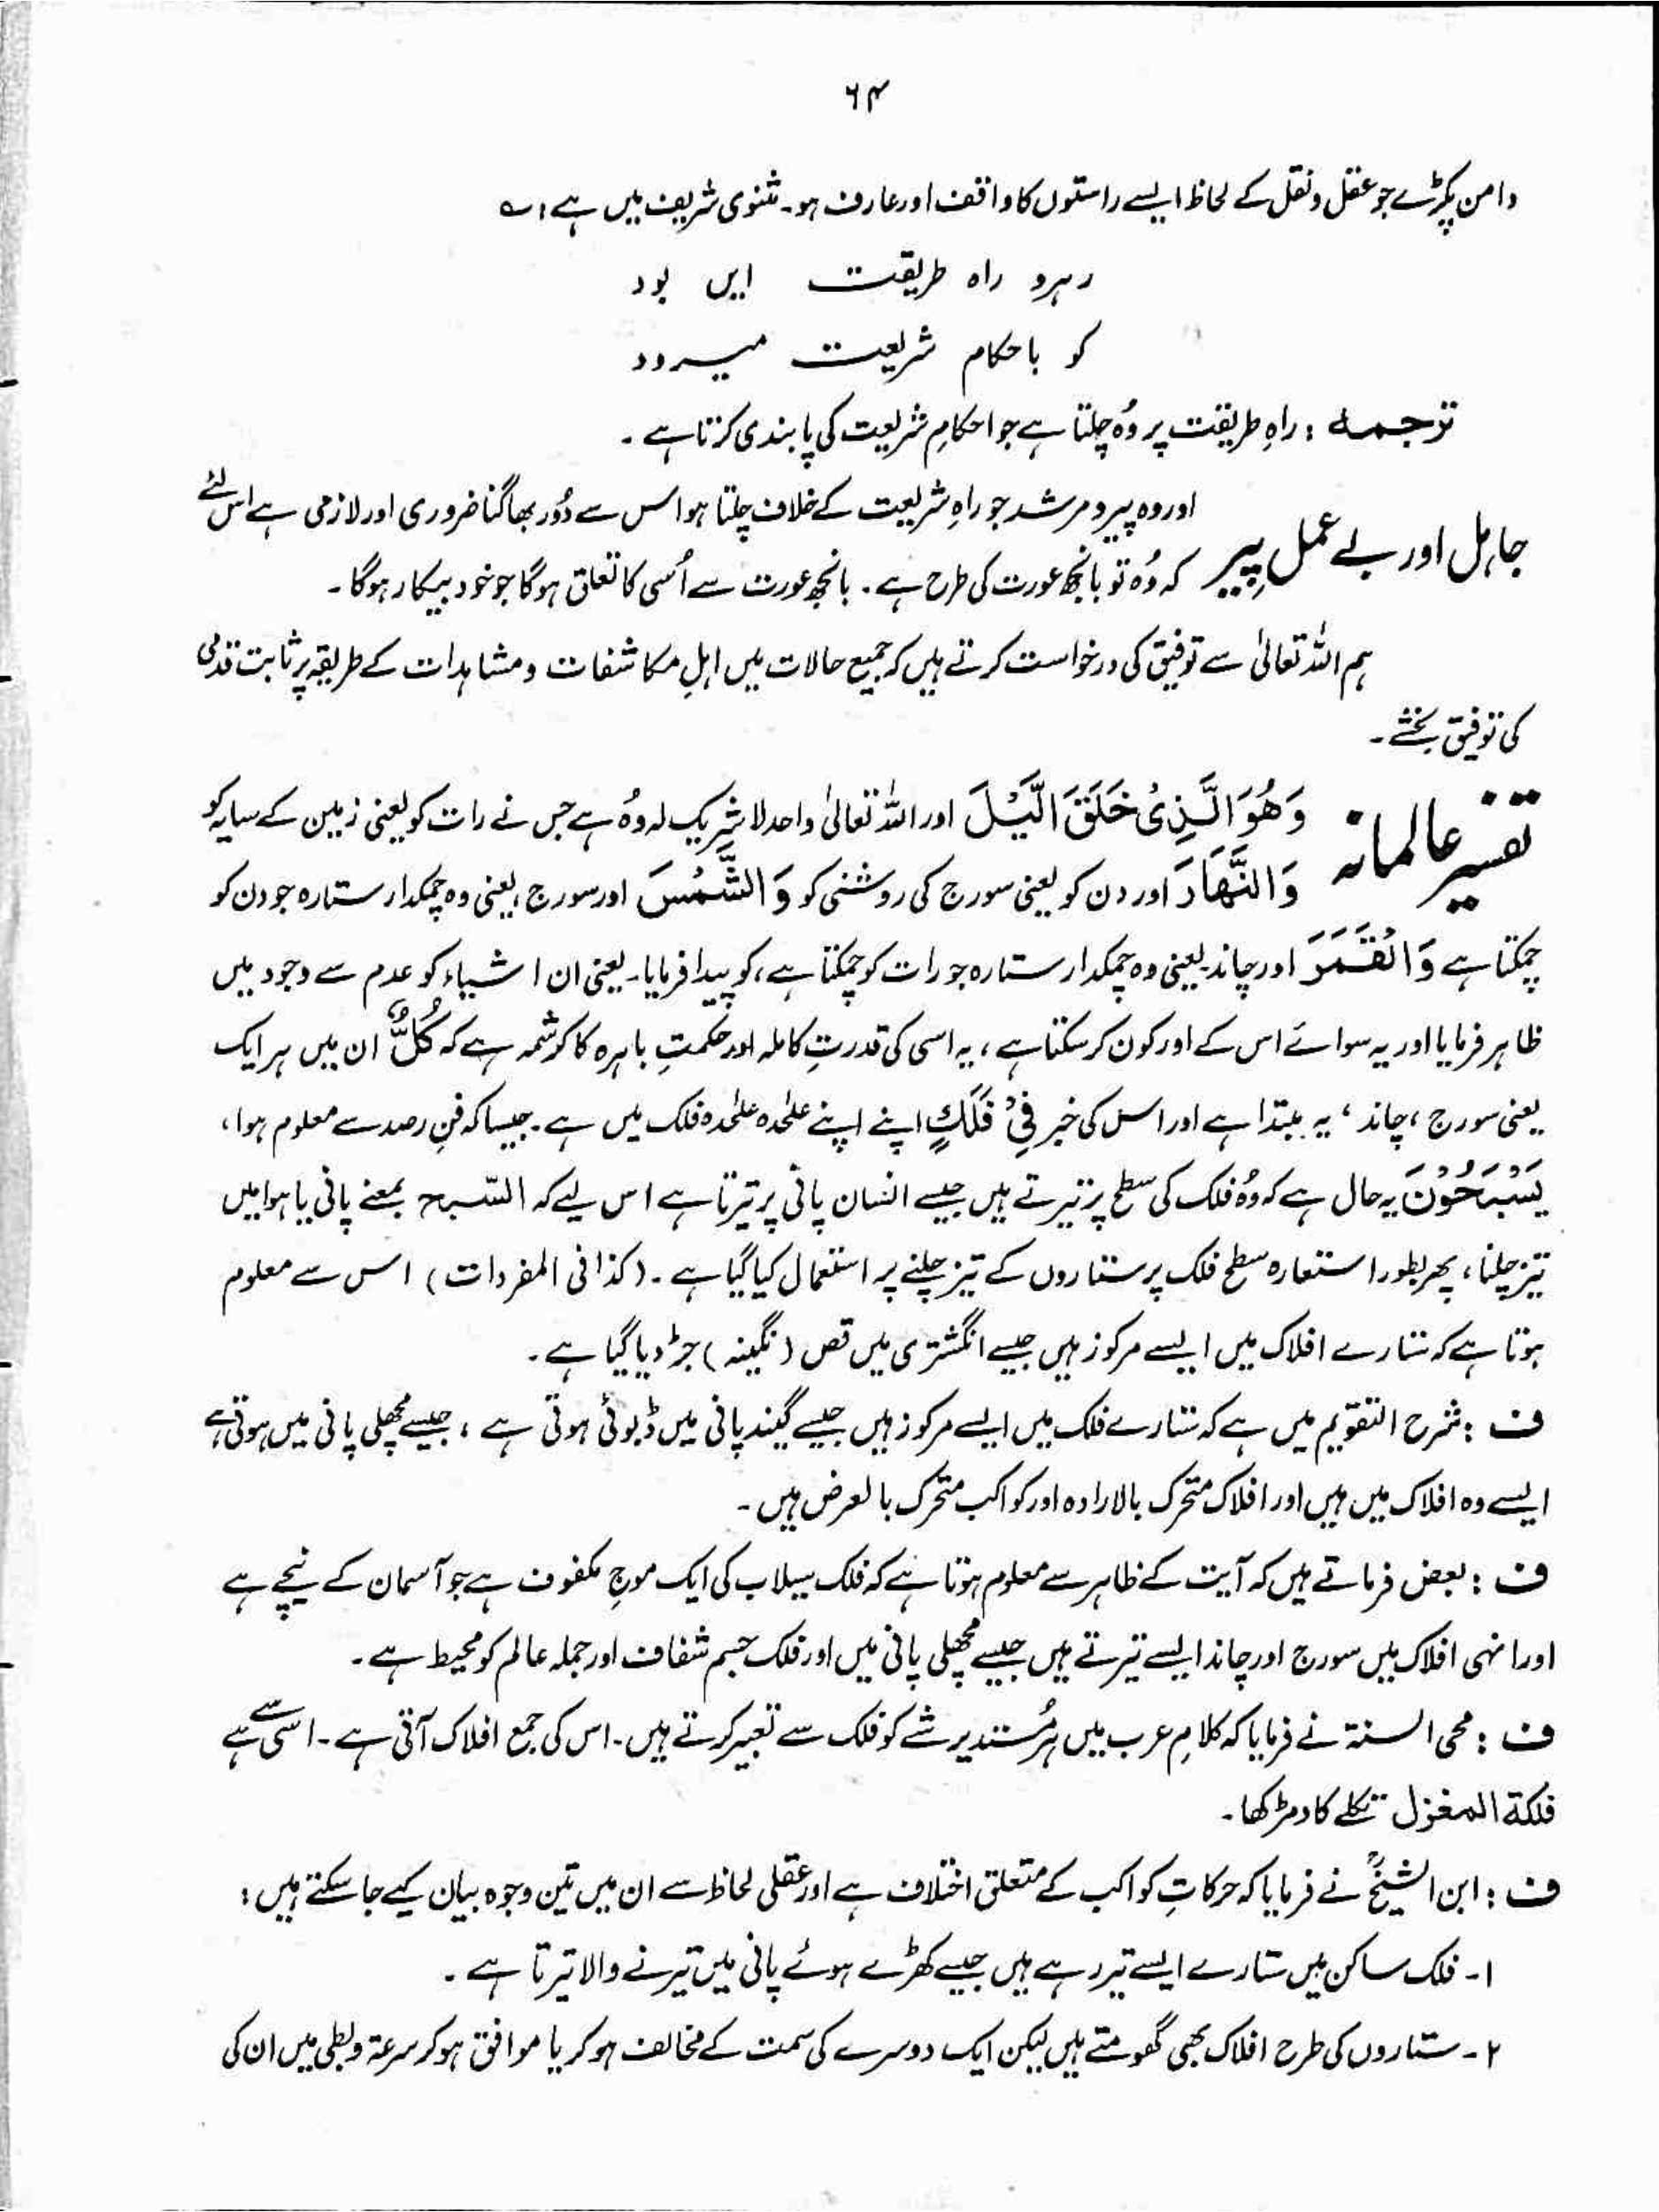 ۶۴
دامن پکڑے جو عقل و نقل کے لحاظ ایسے راستوں کا واقف اور عارف ہو۔ مثنوی شریف میں ہے: ؎
رہرو راہ طریقت ایں بود
کو باحکام شریعت میرود
ترجمہ: راہِ طریقت پر وُہ چلتا ہے جو احکامِ شریعت کی پابندی کرتا ہے۔
جاہل اور بے عمل پیر اور وہ پیر و مرشد جو راہِ شریعت کے خلاف چلتا ہو اس سے دُور بھاگنا ضروری اور لازمی ہے اس لئے
کہ وُہ تو بانجھ عورت کی طرح ہے۔ بانجھ عورت سے اُسی کا تعلق ہوگا جو خود بیکار ہوگا۔
ہم اللہ تعالیٰ سے توفیق کی درخواست کرتے ہیں کہ جمیع حالات میں اہلِ مکاشفات و مشاہدات کے طریقہ پر ثابت قدمی
کی توفیق بخشے۔
تفسیر عالمانہ وَهُوَ الَّذِیْ خَلَقَ الَّیْلَ اور اللہ تعالیٰ واحد لا شریک لہ وُہ ہے جس نے رات کو یعنی زمین کے سایہ کو
وَالنَّهَارَ اور دن کو یعنی سورج کی روشنی کو وَالشَّمْسَ اور سورج، یعنی وہ چمکدار ستارہ جو دن کو
چمکتا ہے وَالْقَمَرَ اور چاند یعنی وہ چمکدار ستارہ جو رات کو چمکتا ہے، کو پیدا فرمایا۔ یعنی ان اشیاء کو عدم سے وجود میں
ظاہر فرمایا اور یہ سوائے اس کے اور کون کر سکتا ہے، یہ اسی کی قدرتِ کاملہ اور حکمتِ باہرہ کا کرشمہ ہے کہ كُلٌّ ان میں ہر ایک
یعنی سورج، چاند، یہ مبتدا ہے اور اس کی خبر فِیْ فَلَكٍ اپنے اپنے علٰحدہ علٰحدہ فلک میں ہے۔ جیسا کہ فنِ رصد سے معلوم ہوا،
یَسْبَحُوْنَ یہ حال ہے کہ وُہ فلک کی سطح پر تیرتے ہیں جیسے انسان پانی پر تیرتا ہے اس لیے کہ السّبح بمعنے پانی یا ہوا میں
تیز چلنا، پھر بطور استعارہ سطح فلک پر ستاروں کے تیز چلنے پر استعمال کیا گیا ہے۔ (کذا فی المفردات) اس سے معلوم
ہوتا ہے کہ ستارے افلاک میں ایسے مرکوز ہیں جیسے انگشتری میں فص (نگینہ) جڑ دیا گیا ہے۔
ف: شرح التقویم میں ہے کہ ستارے فلک میں ایسے مرکوز ہیں جیسے گیند پانی میں ڈبوئی ہوتی ہے، جیسے مچھلی پانی میں ہوتی ہے
ایسے وہ افلاک میں ہیں اور افلاک متحرک بالارادہ اور کواکب متحرک بالعرض ہیں۔
ف: بعض فرماتے ہیں کہ آیت کے ظاہر سے معلوم ہوتا ہے کہ فلک سیلاب کی ایک موجِ مکفوف ہے جو آسمان کے نیچے ہے
اور انہی افلاک میں سورج اور چاند ایسے تیرتے ہیں جیسے مچھلی پانی میں اور فلک جسم شفاف اور جملہ عالم کو محیط ہے۔
ف: محی السنۃ نے فرمایا کہ کلامِ عرب میں ہر مُستدیر شے کو فلک سے تعبیر کرتے ہیں۔ اس کی جمع افلاک آتی ہے۔ اسی سے ہے
فلکۃ المغزل تکلے کا دمڑکھا۔
ف: ابن الشیخؒ نے فرمایا کہ حرکاتِ کواکب کے متعلق اختلاف ہے اور عقلی لحاظ سے ان میں تین وجوہ بیان کیے جا سکتے ہیں:
۱۔ فلک ساکن میں ستارے ایسے تیر رہے ہیں جیسے کھڑے ہوئے پانی میں تیرنے والا تیرتا ہے۔
۲۔ ستاروں کی طرح افلاک بھی گھومتے ہیں لیکن ایک دوسرے کی سمت کے مخالف ہو کر یا موافق ہو کر سرعۃ و بطی میں ان کی